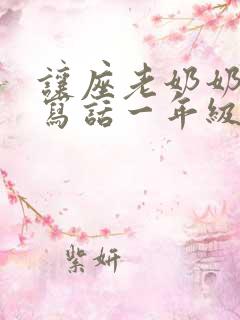 讓座老奶奶
寫話一年級
紫妍